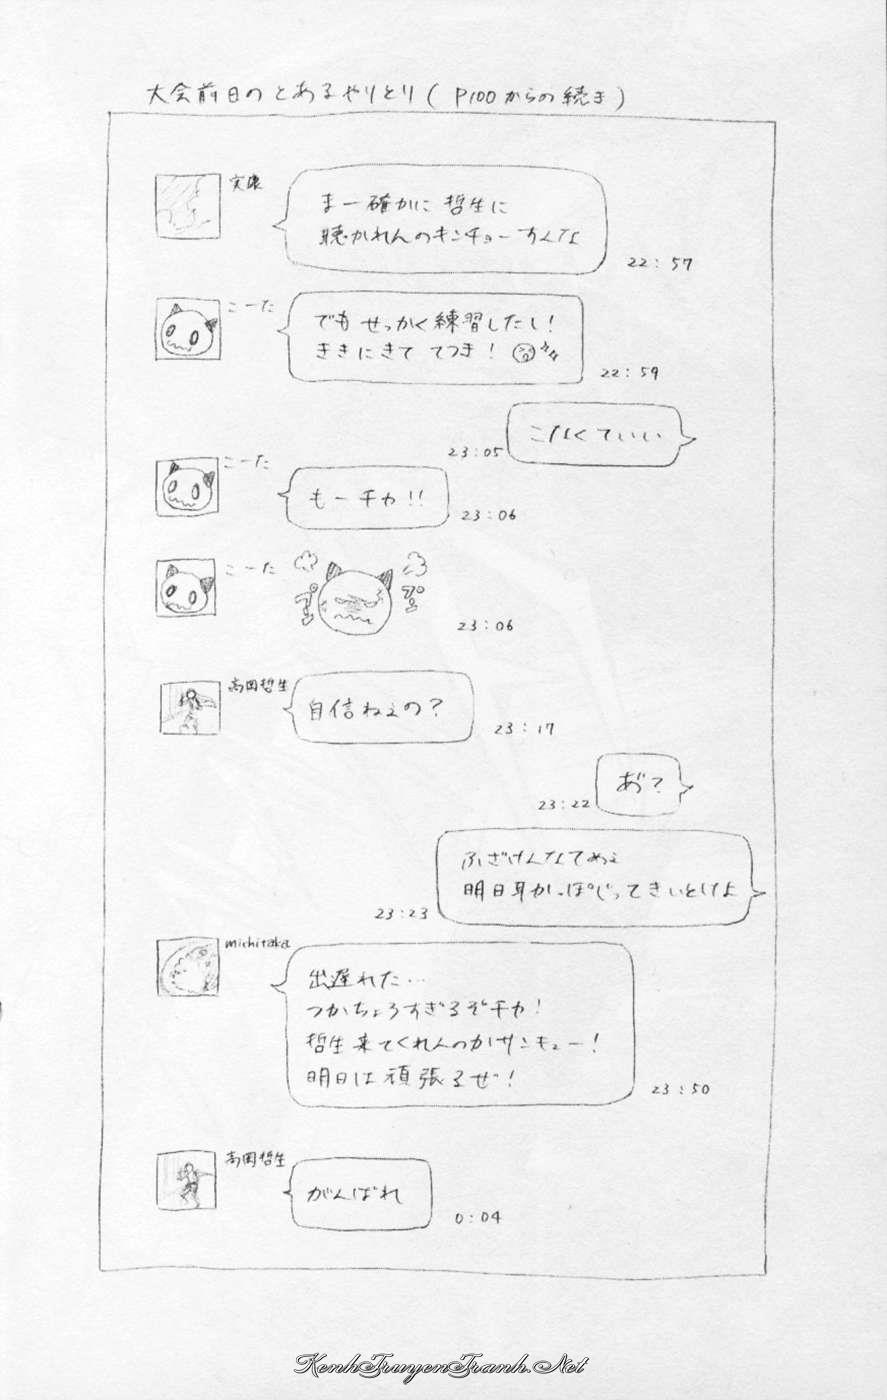 大会前日のとあるやりとり(P100からの続き)
実康
まー確かに哲生に
聴かれんのキンチョーすんな
22:57
こーた
でもせっかく練習したし!
ききにきて てつき!
22:59
こなくていい
23:05
こーた
もーチカ!!
23:06
こーた
プン
プン
23:06
高岡哲生
自信ねぇの?
23:17
あ゛?
23:22
ふざけんなてめぇ
明日耳かっぽじってきいとけよ
23:23
michitaka
出遅れた…
つかちょろすぎるぞチカ!
哲生来てくれんのかサンキュー!
明日は頑張るぜ!
23:50
高岡哲生
がんばれ
0:04
KenhTruyenTranh.Net